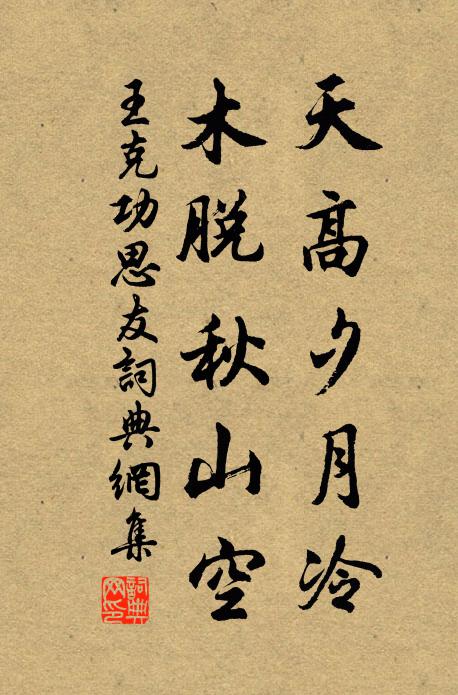 天高夕月冷
木脱秋山空
王克功思友詞典網集
詞典
网印